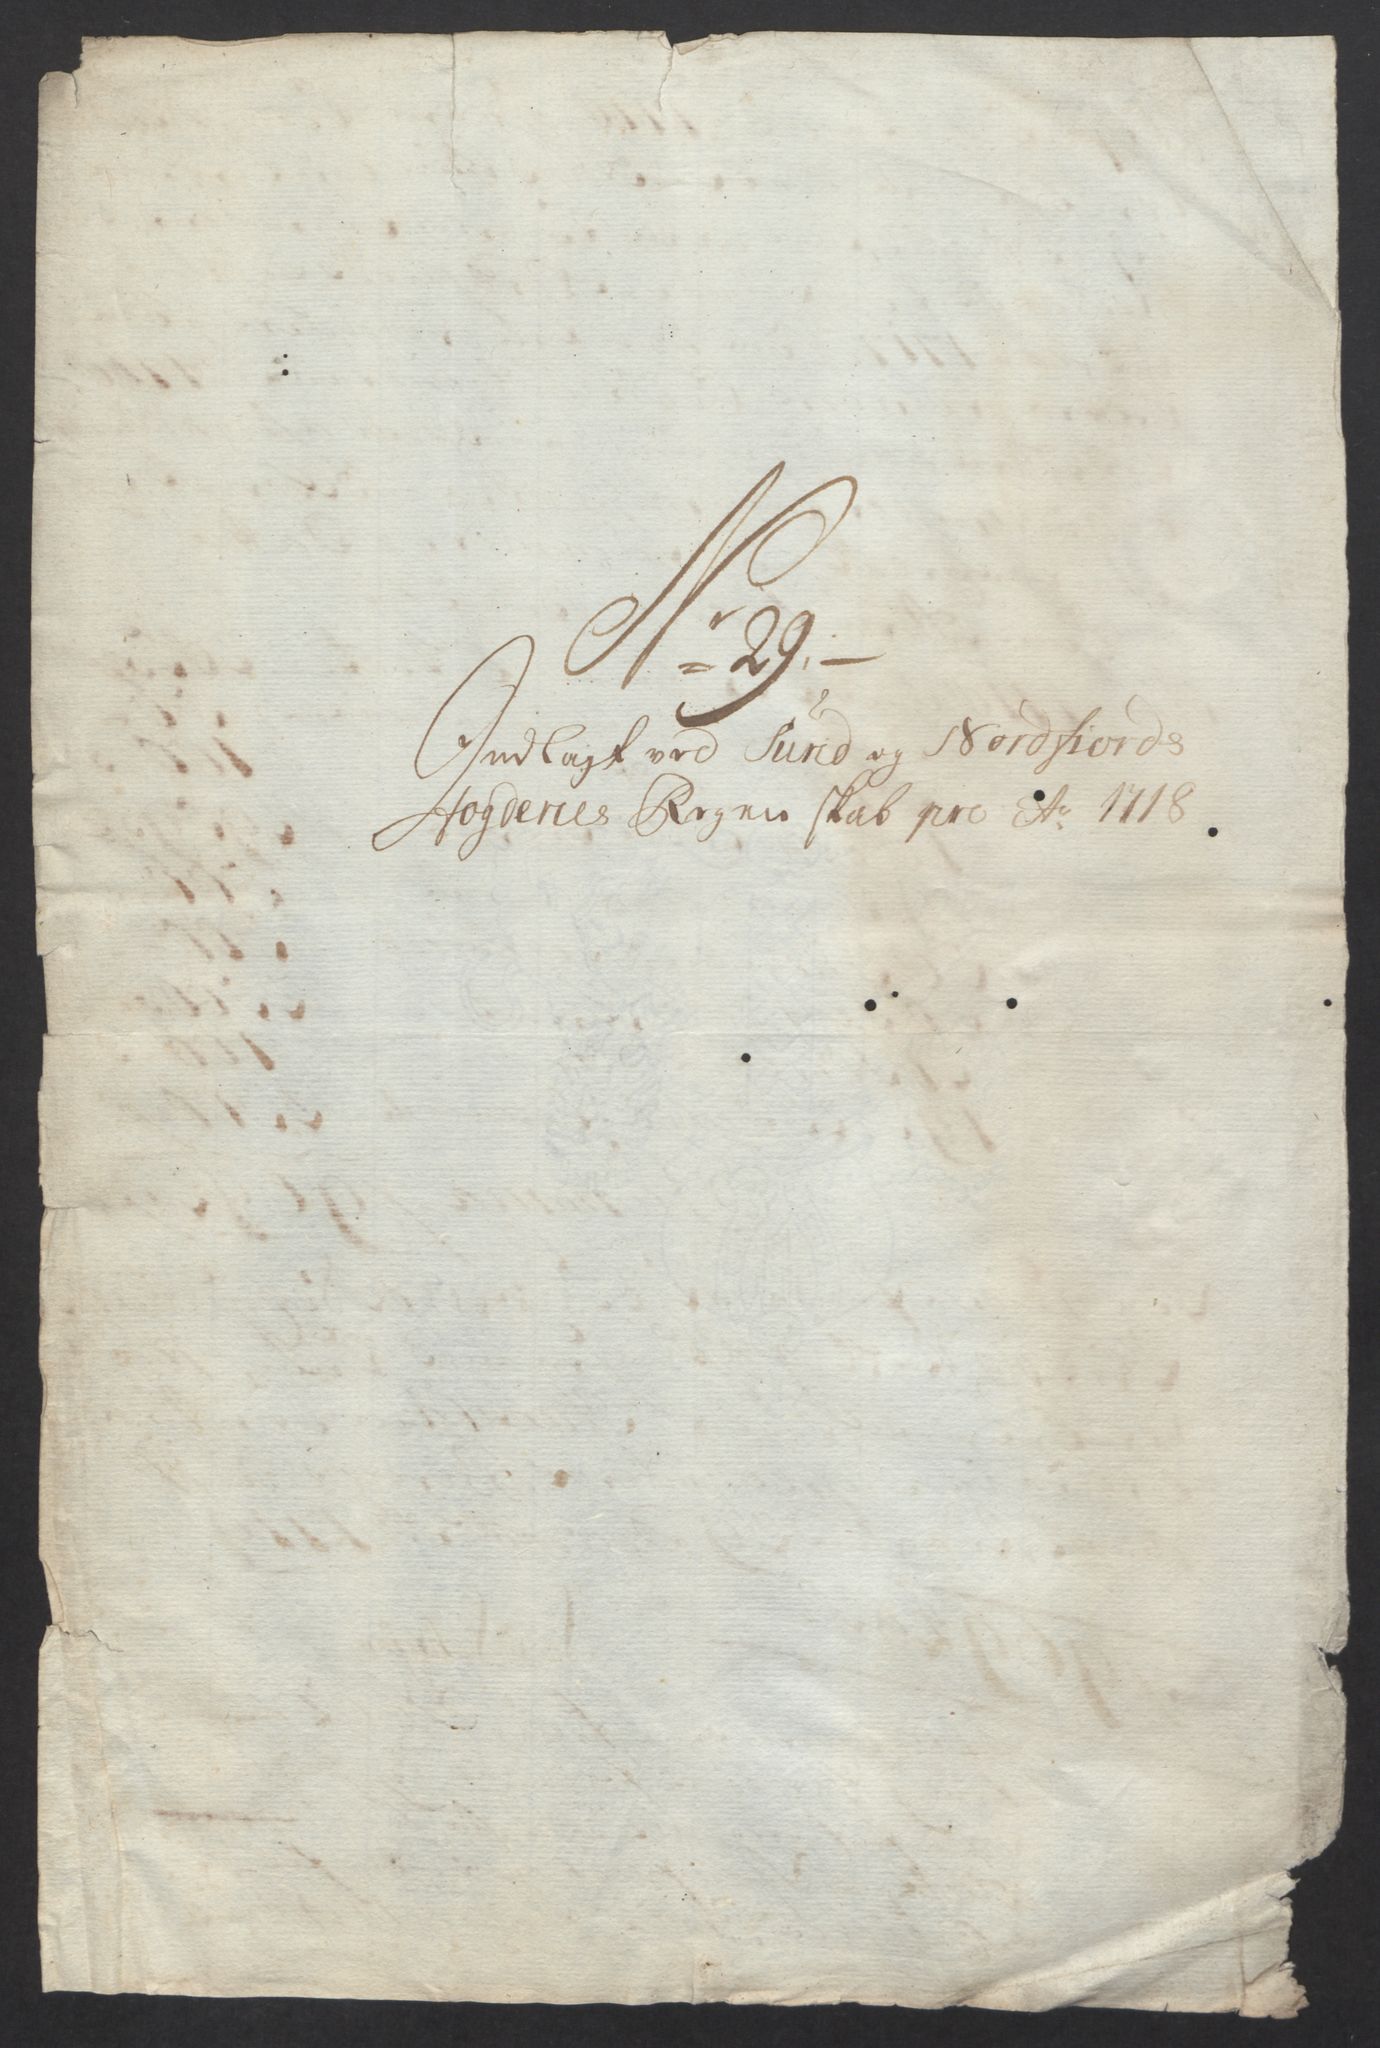 Nr 29.
Indlagt ved Sund og Nordfiords
Fogderies Regenskab pro Ao 1718